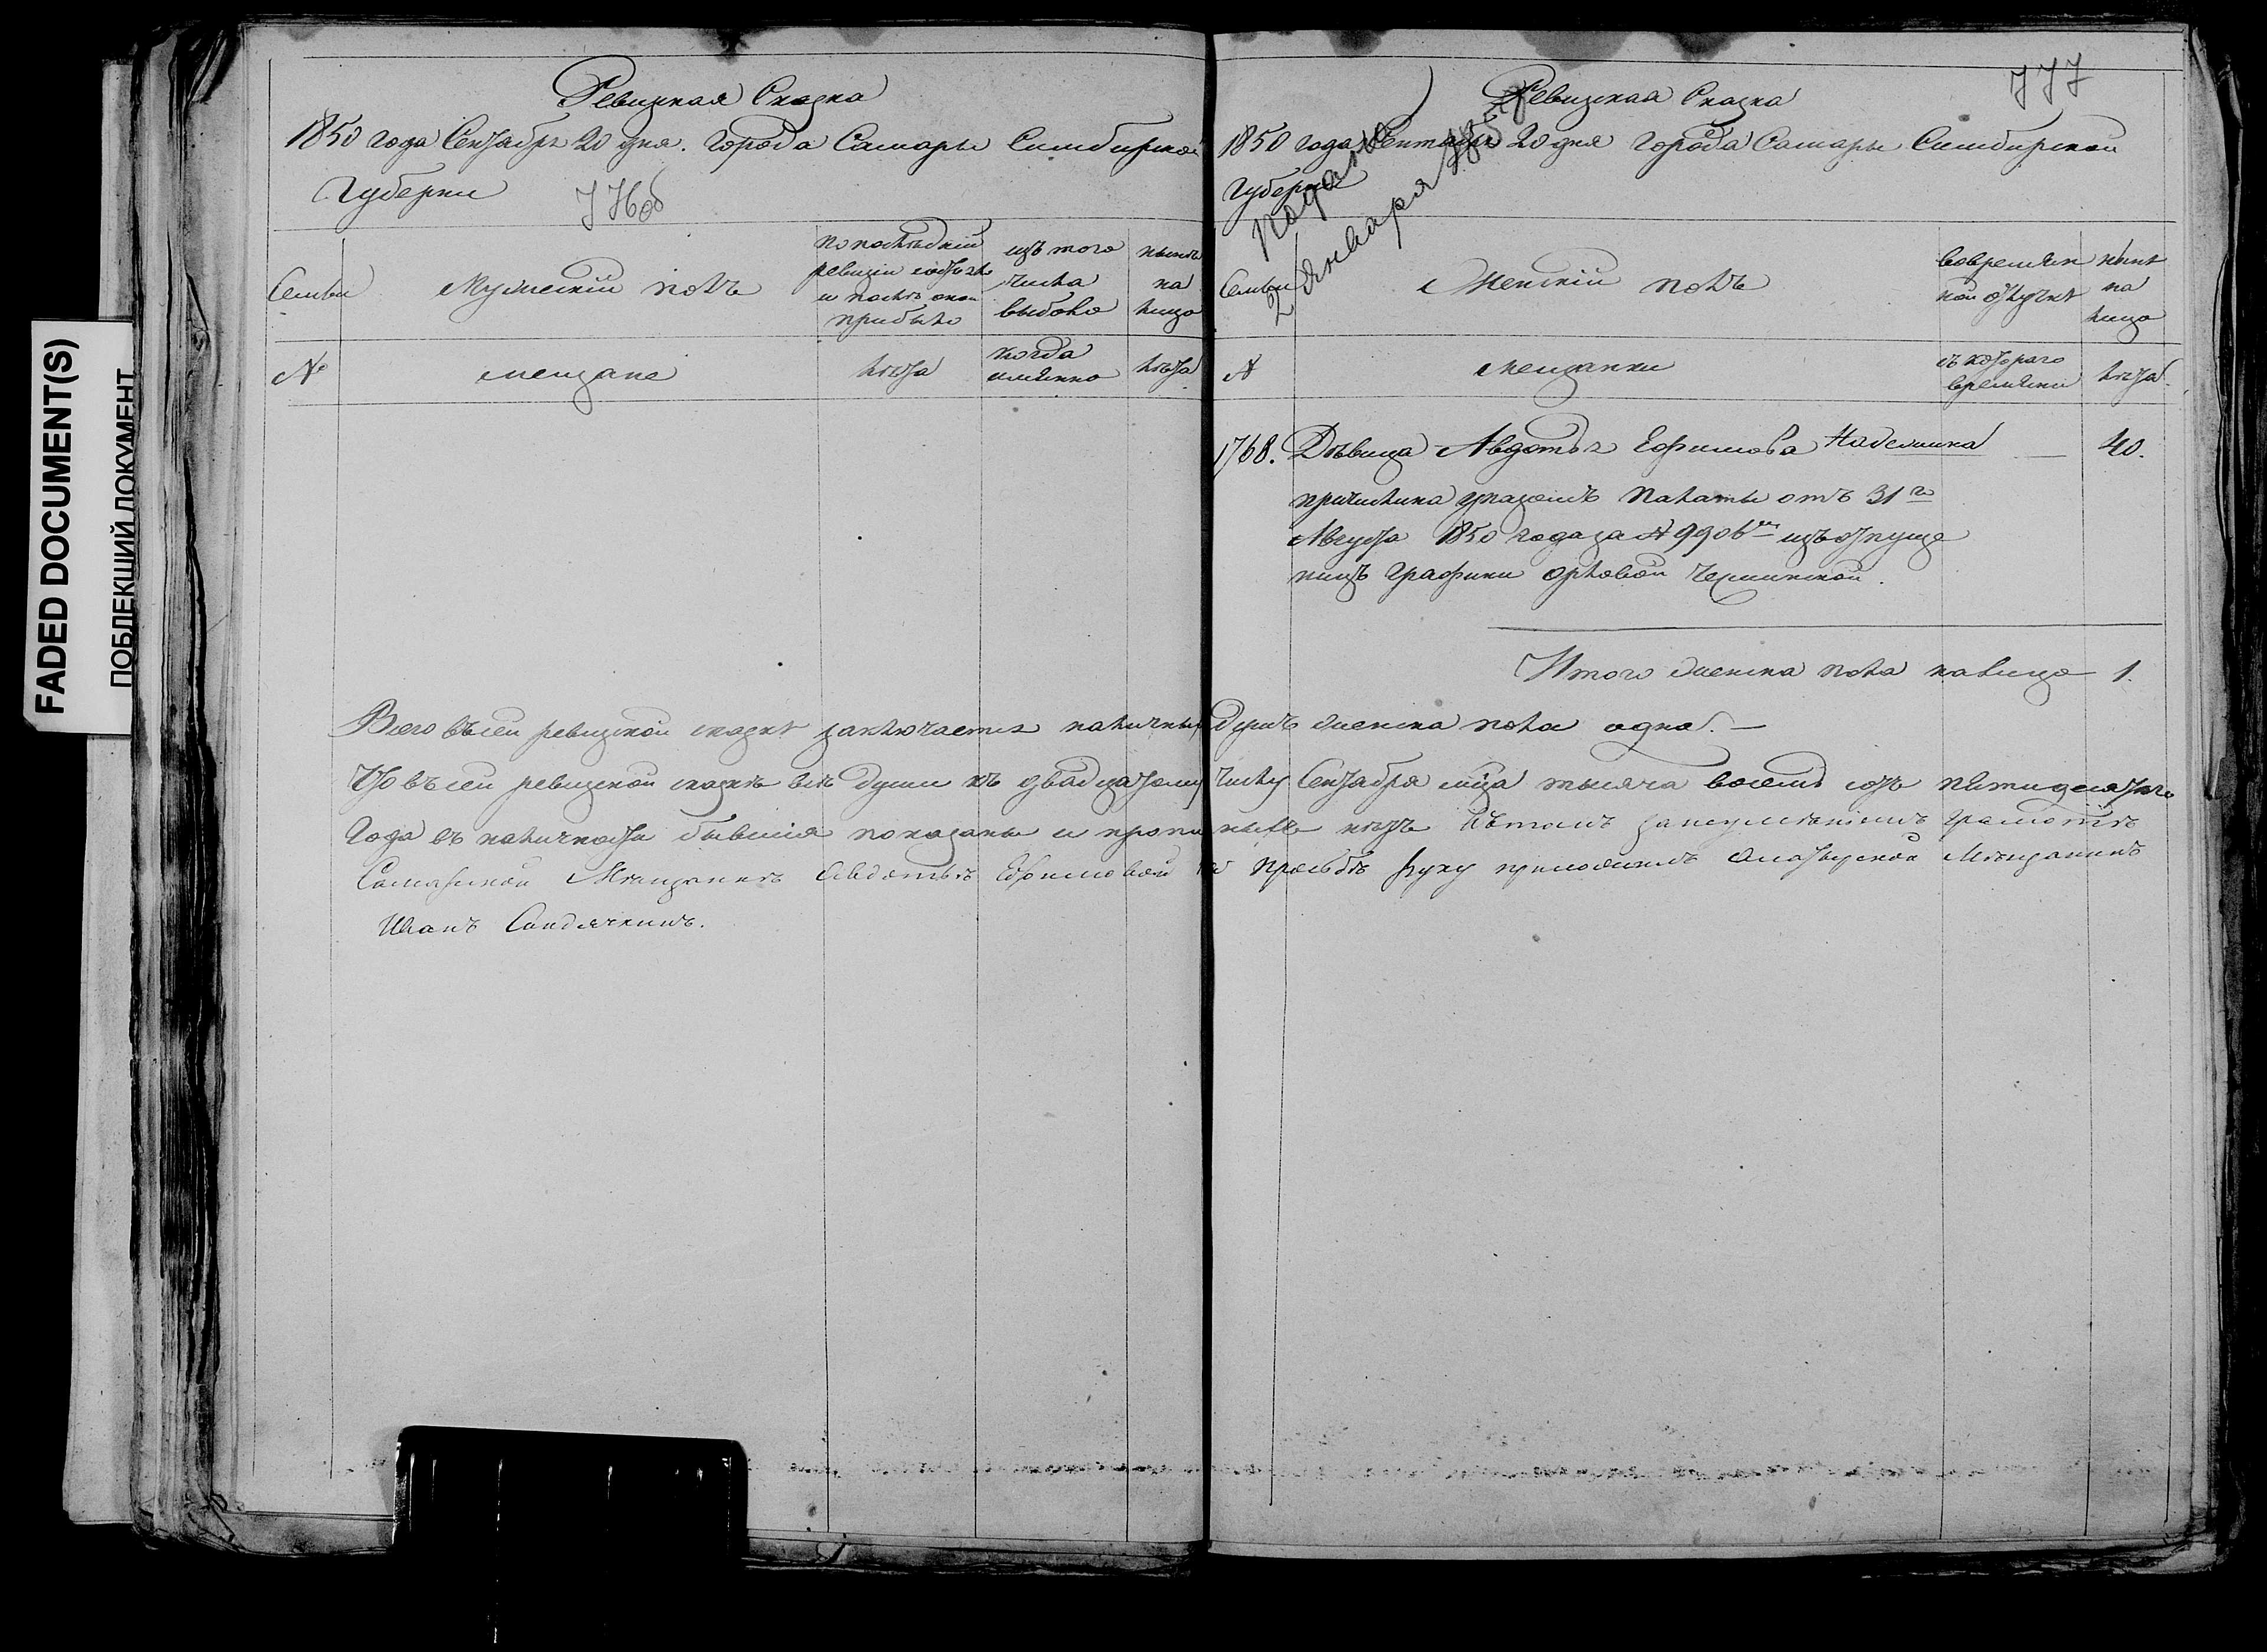 FADED DOCUMENT(S)
ПОБЛЕКШИЙ ДОКУМЕНТ
Ревизкая Сказка
1850 года Сентября 20 дня. Города Самары Симбирской
Губерни
776об
Семьи
Мужеский полъ
по последней ревизіи состояло и после оной прибыло
изъ того числа выбыло
ныне на лицо
№
мещане
лета
когда имянно
лета
Ревизская Сказка
777
1850 года Сентября 20 дня Города Самары Симбирской
Губерни
Подана
2 Января
Семьи
Женскій полъ
вовремян ной отлучке
ныне на лицо
№
мещанки
съ котораго времяни
лета
1768. Девица Авдотья Ефимова 40.
причислина указомъ Палаты отъ 31го
Августа 1850 года за № 9906м изъ отпуще
ницъ Графини Орловой Чесминской.
Итого женска пола налицо 1.
Всего въ сей ревизской сказке заключается наличныхъ Душъ женска пола одна. —
Что въ сей ревизской сказкѣ всѣ Души къ двадцатому числу Сентября мца тысяча восемь сотъ пятидесятого
Года въ наличности бывшія показаны и пропи ныхъ нетъ въ томъ занеумѣніемъ грамотѣ
Самарской Мѣщанкѣ Авдотьѣ Ефимовой по прозьбѣ Руку приложилъ Мѣщанинъ
Иванъ